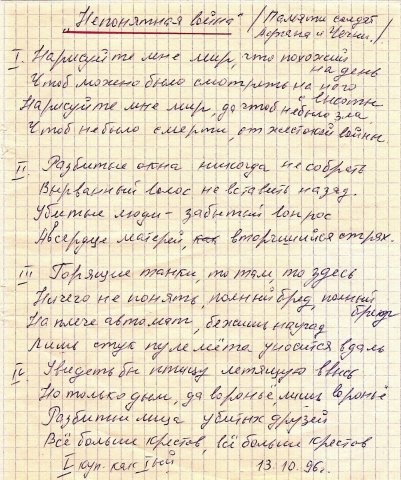 "Непонятная война" /Памяти солдат
Афгана и Чечни./
I. Нарисуйте мне мир, что похожий
на день
Чтоб можно было смотреть на него
с высоты
Нарисуйте мне мир да чтоб не было зла
Чтоб не было смерти, от жестокой войны.
II. Разбитые окна никогда не собрать
Вырванный волос не вставить назад.
Убитые люди - забытый вопрос
А в сердце матерей, как вторгшийся страх.
III Горящие танки, то там, то здесь
Ничего не понять, полный бред, полный
бред
На плече автомат, бежишь наугад
Лишь стук пулемёта уносится вдаль
IV. Увидеть бы птицу летящую ввысь
Но только дым, да вороньё, лишь вороньё
Разбитые лица убитых друзей
Всё больше крестов, всё больше крестов
V куп. как I ый 13.10.96г.